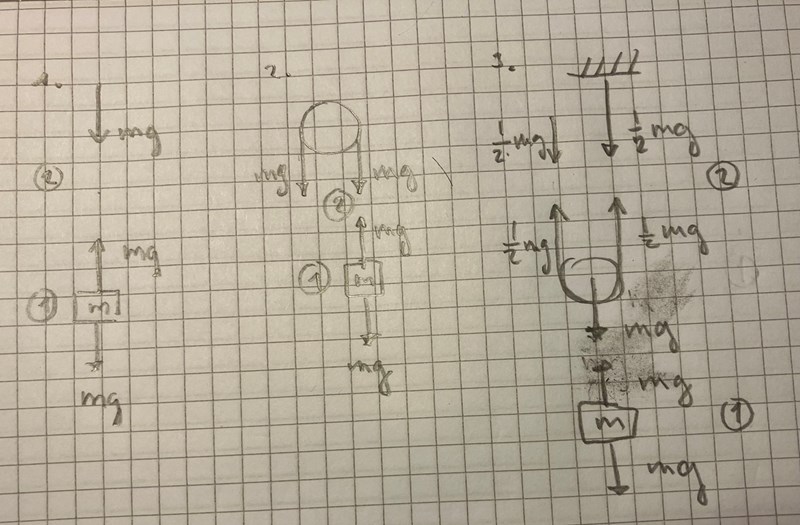 1.
mg
②
mg
①
m
mg
2.
mg
mg
②
mg
①
m
mg
3.
½mg
½mg
②
½mg
½mg
mg
mg
m
①
mg